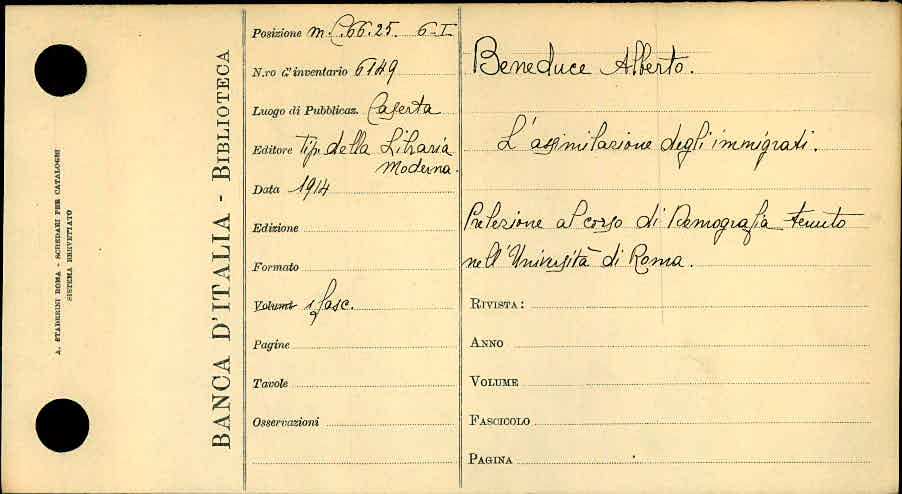 A. STADERINI ROMA - SCHEDARI PER CATALOGHI
SISTEMA BREVETTATO
BANCA D'ITALIA - BIBLIOTECA
Posizione m. C. 66. 25. 6-I
N.ro d'inventario 6149
Luogo di Pubblicaz. Caserta
Editore Tip. della Libraria
Moderna.
Data 1914
Edizione
Formato
Volumi 1 fasc.
Pagine
Tavole
Osservazioni
Beneduce Alberto.
L'assimilazione degli immigrati.
Prelezione al corso di Demografia tenuto
nell'Università di Roma.
RIVISTA:
ANNO
VOLUME
FASCICOLO
PAGINA